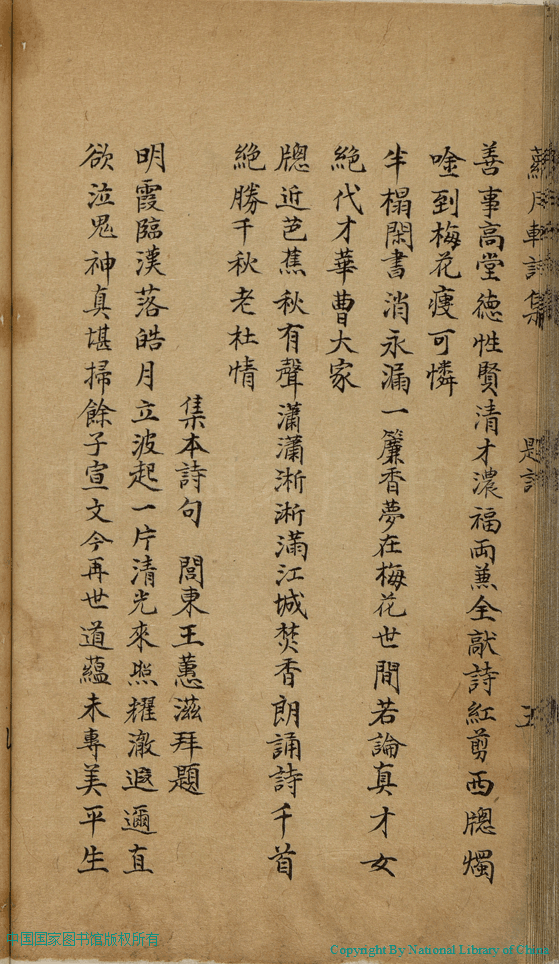 善事高堂德性賢清才濃福両兼全敲詩紅剪西牕燭
唫到梅花瘦可憐
半榻閑書消永漏一簾香夢在梅花世間若論真才女
絶代才華曹大家
牕近芭蕉秋有聲瀟瀟淅淅滿江城焚香朗誦詩千首
絶勝千秋老杜情
集本詩句 閭東王蕙滋拜題
明霞臨漢落皓月立波起一片清光來照耀澈遐邇直
欲泣鬼神真堪掃餘子宣文今再世道蘊未專美平生
中国国家图书馆版权所有
Copyright By National Library of China